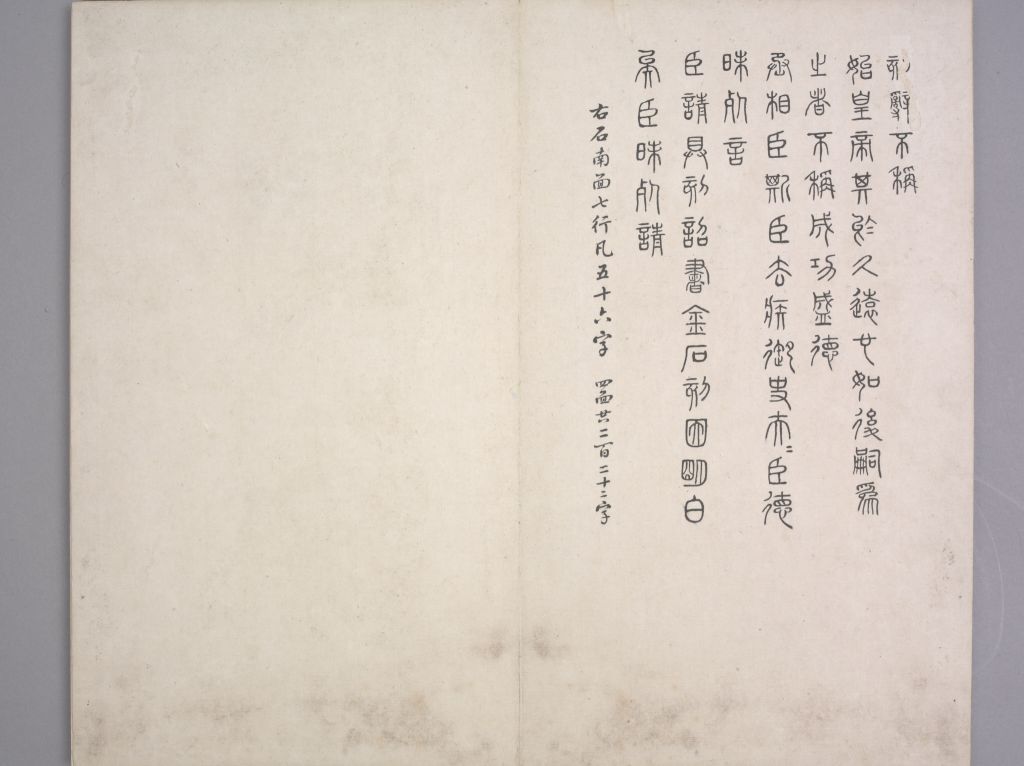 刻辭不稱
始皇帝其於久遠也如後嗣為
之者不稱成功盛德
丞相臣斯臣去疾御史夫₌臣德
昧死言
臣請具刻詔書金石刻因明白
矣臣昧死請
右石南面七行凡五十六字 四面共二百二十二字